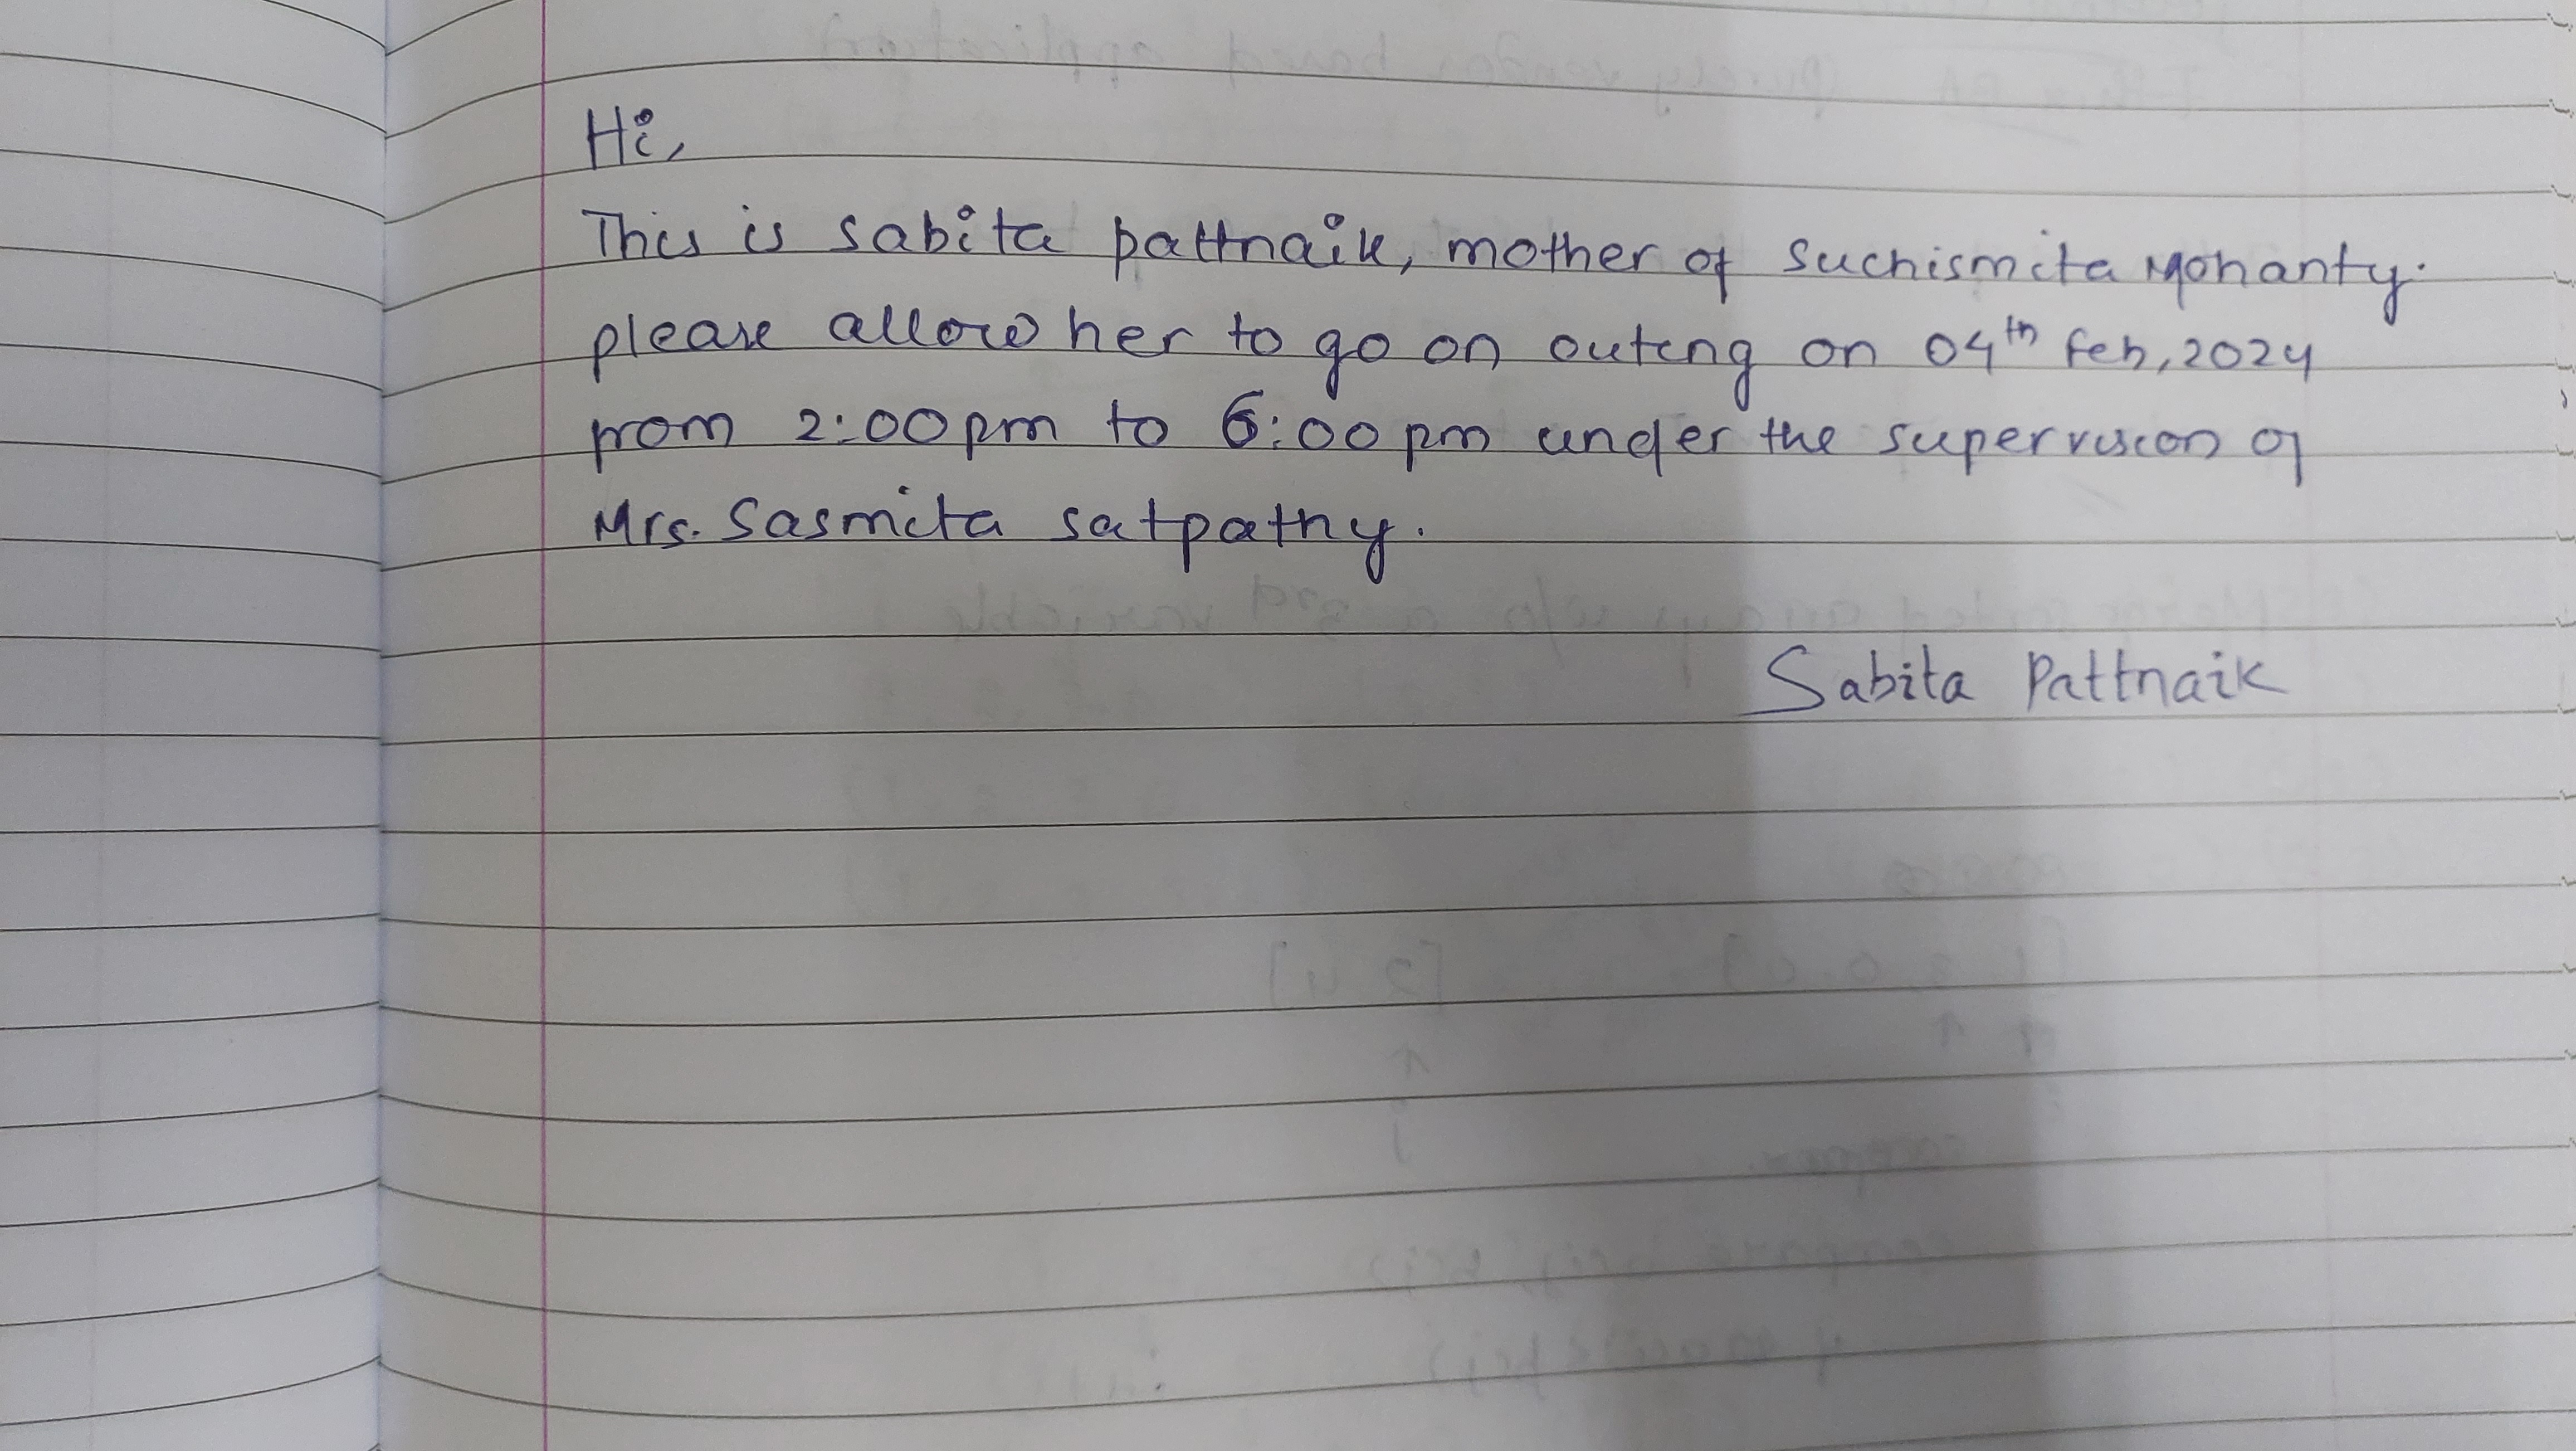 Hi,
This is sabita pattnaik, mother of Suchismita Mohanty.
please allow her to go on outing on 04th Feb, 2024
from 2:00pm to 6:00pm under the supervision of
Mrs. Sasmita satpathy.
Sabita Pattnaik